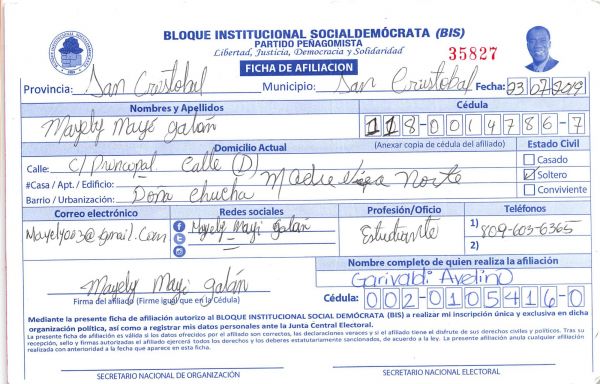 BLOQUE INSTITUCIONAL SOCIALDEMÓCRATA (BIS)
PARTIDO PEÑAGOMISTA
Libertad, Justicia, Democracia y Solidaridad
35827
FICHA DE AFILIACION
Provincia: San Cristobal Municipio: San Cristobal Fecha: 23/07/2019
Nombres y Apellidos Cédula
Mayely Mayi galán 118-0014786-7
Domicilio Actual (Anexar copia de cédula del afiliado) Estado Civil
Calle: C/ Principal Calle (D) Casado
#Casa / Apt. / Edificio: Madre Vieja Norte Soltero
Barrio / Urbanización: Doña Chucha Conviviente
Correo electrónico Redes sociales Profesión/Oficio Teléfonos
Mayely003@gmail.Com Mayely Mayi galán Estudiante 1) 809-603-6365
2)
Mayely Mayi galán
Firma del afiliado (Firme igual que en la Cédula)
Nombre completo de quien realiza la afiliación
Garivaldi Avelino
Cédula: 002-0105416-0
Mediante la presente ficha de afiliación autorizo al BLOQUE INSTITUCIONAL SOCIAL DEMÓCRATA (BIS) a realizar mi inscripción única y exclusiva en dicha
organización política, así como a registrar mis datos personales ante la Junta Central Electoral.
La presente ficha de afiliación es válida si los datos ofrecidos por el afiliado son correctos, las declaraciones veraces y si el afiliado tiene el disfrute de sus derechos civiles y políticos. Tras su
recepción, sello y firmas autorizadas el afiliado ejercerá todos los derechos y los deberes estatutariamente sancionados, de acuerdo a la ley. La presente afiliación anula cualquier afiliación
realizada con anterioridad a la fecha que aparece en esta ficha.
SECRETARIO NACIONAL DE ORGANIZACIÓN SECRETARIO NACIONAL ELECTORAL